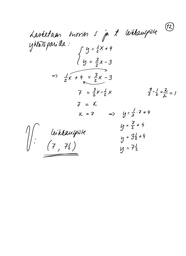 12
Lasketaan suorien s ja t leikkauspiste
yhtälöparilla:
{ y = ½x + 4
y = 3/2x - 3
⇒ ½x + 4 = 3/2x - 3
7 = 3/2x - ½x
7 = x
x = 7 ⇒ y = ½·7 + 4
y = 7/2 + 4
y = 3½ + 4
y = 7½
V: Leikkauspiste
(7, 7½)